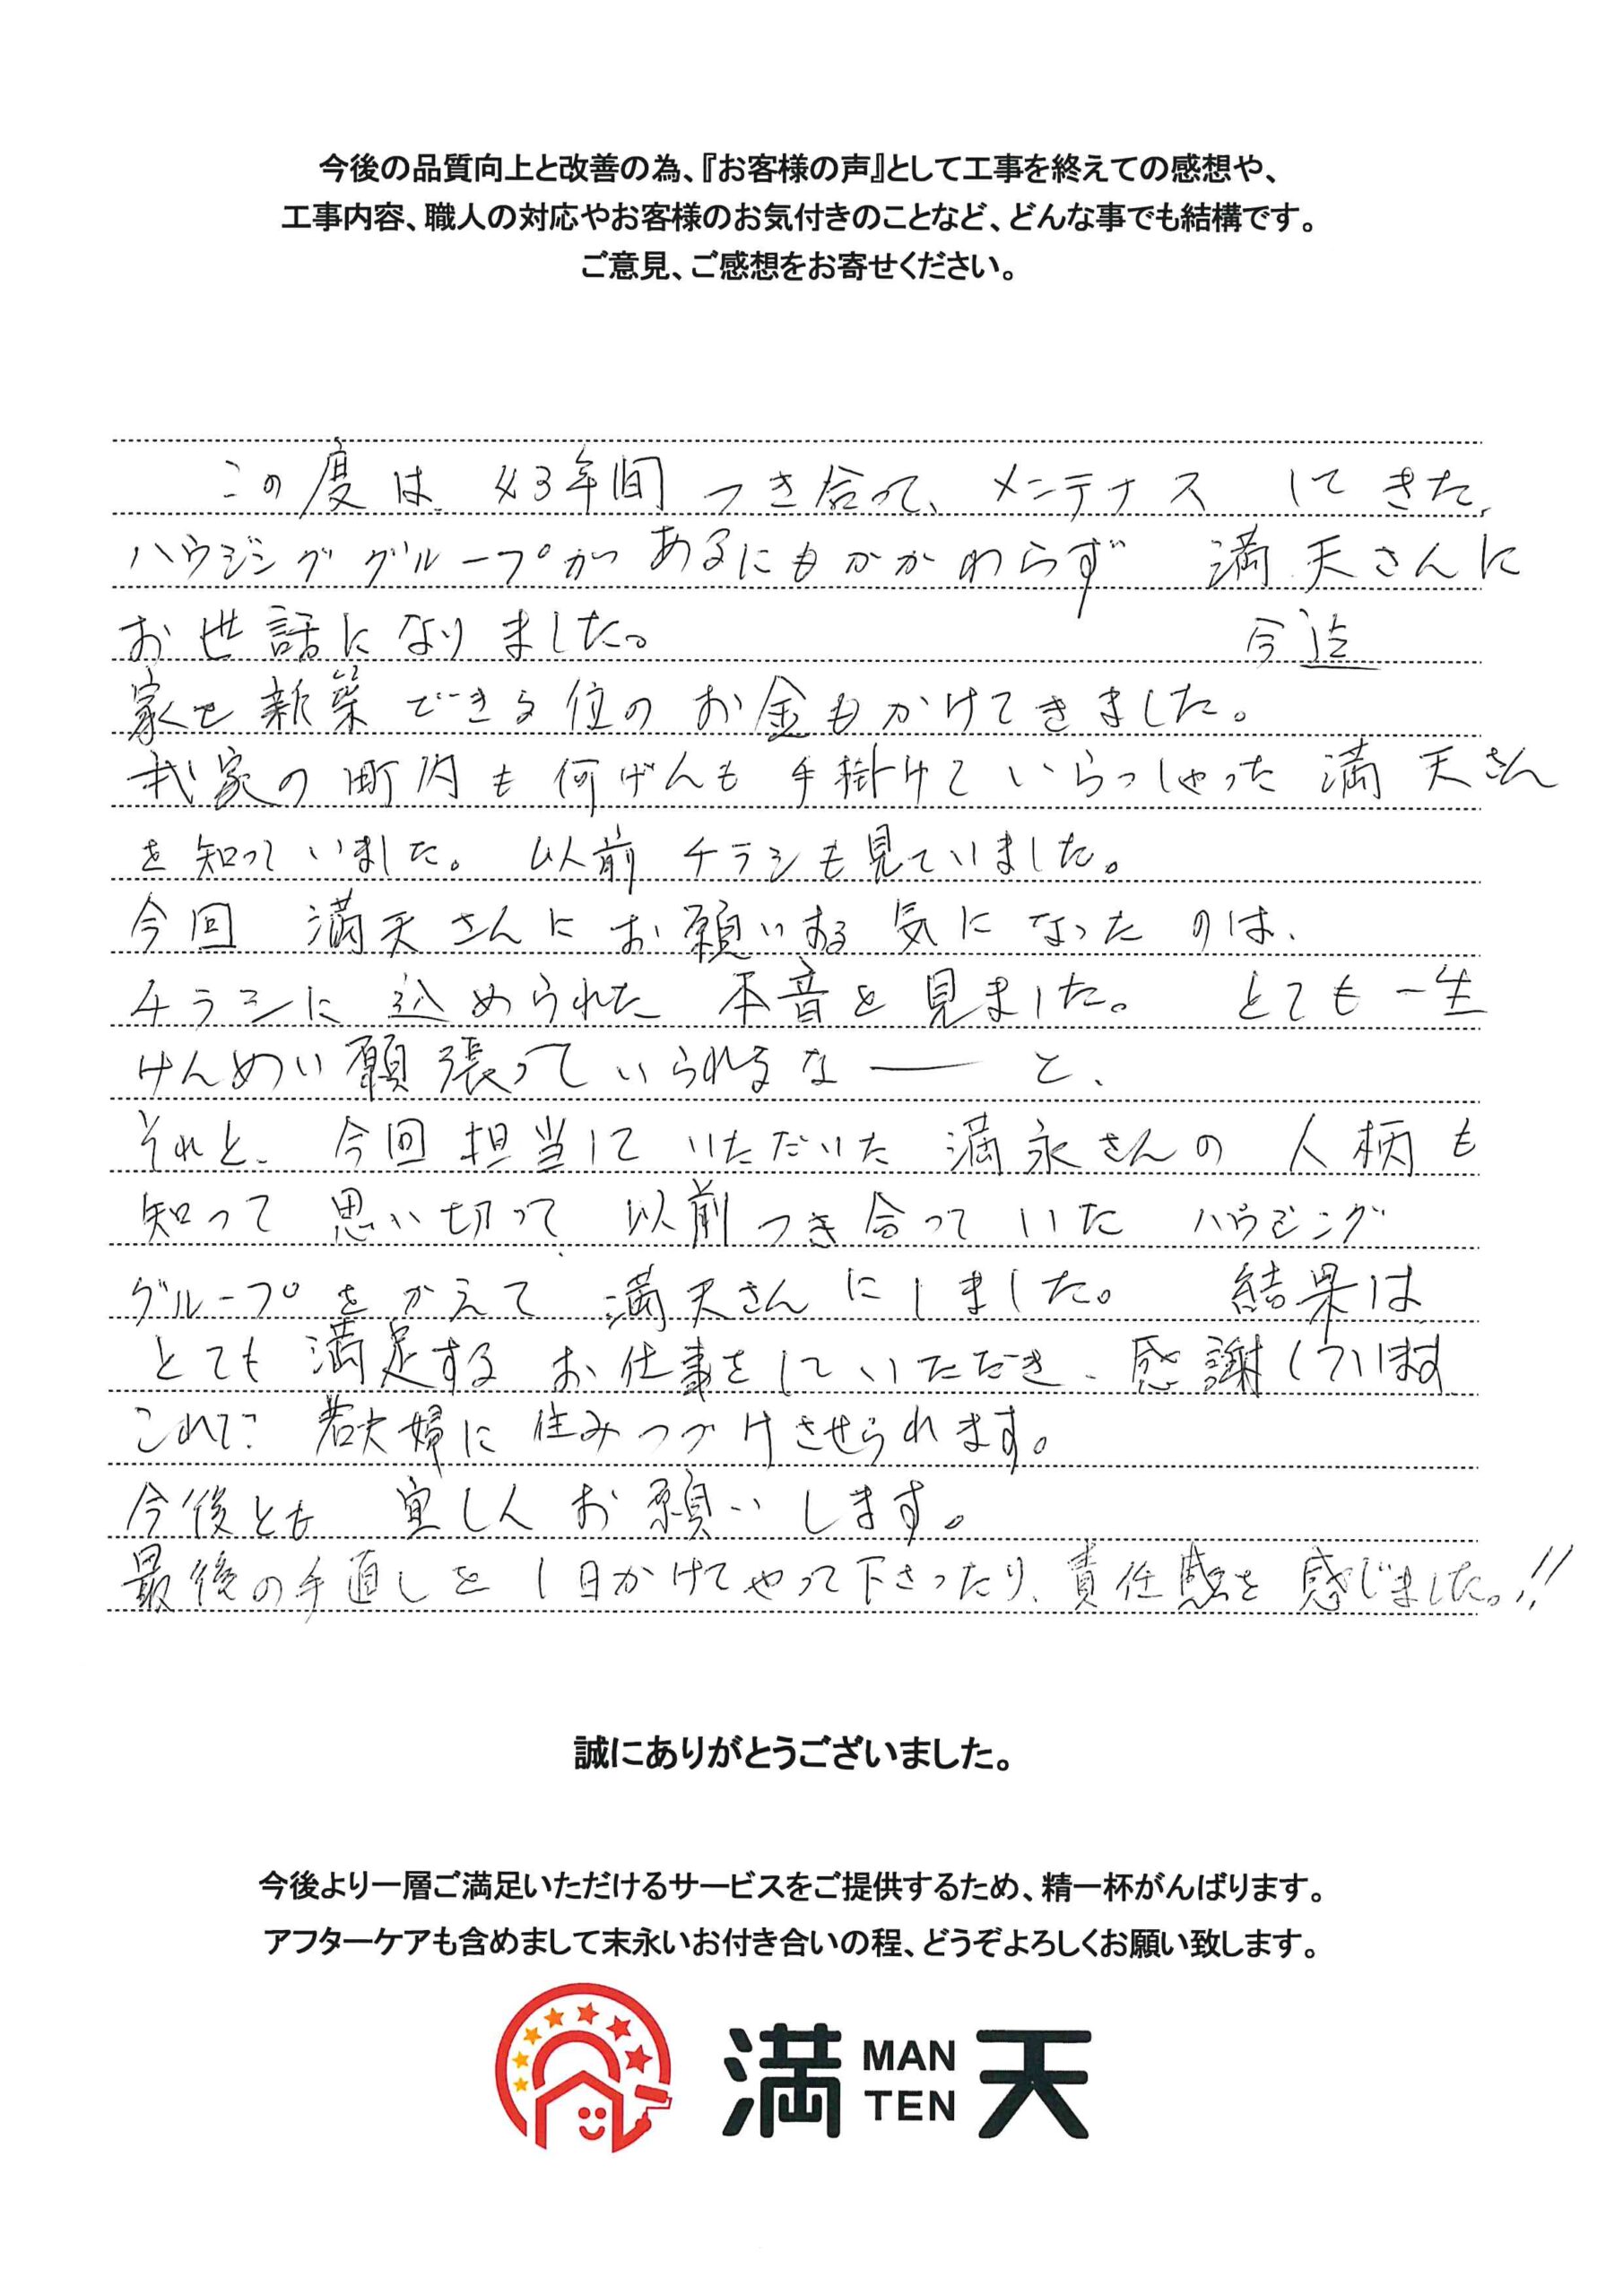 今後の品質向上と改善の為、『お客様の声』として工事を終えての感想や、
工事内容、職人の対応やお客様のお気付きのことなど、どんな事でも結構です。
ご意見、ご感想をお寄せください。
この度は、43年間つき合って、メンテナスしてきた、
ハウジンググループがあるにもかかわらず 満天さんに
お世話になりました。 今迄
家を新築できる位のお金もかけてきました。
我家の町内も何げんも手掛けていらっしゃった満天さん
を知っていました。以前チラシも見ていました。
今回 満天さんにお願いする気になったのは、
チラシに込められた本音を見ました。 とても一生
けんめい願張っていられるなーと、
それと、今回担当していただいた満永さんの人柄も
知って思い切って、以前つき合っていたハウジング
グループをかえて満天さんにしました。 結果は
とても満足するお仕事をしていただき、感謝しています
これで若夫婦に住みつづけさせられます。
今後とも 宜しくお願いします。
最後の手直しを1日かけてやって下さったり、責任感を感じました。!!
誠にありがとうございました。
今後より一層ご満足いただけるサービスをご提供するため、精一杯がんばります。
アフターケアも含めまして末永いお付き合いの程、どうぞよろしくお願い致します。
満 MAN TEN 天